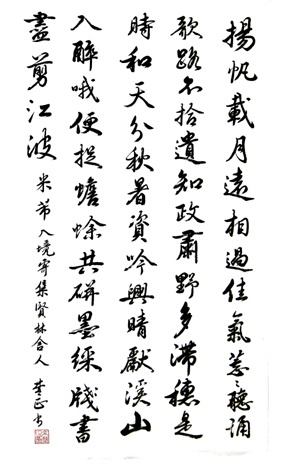 揚帆載月遠相過佳氣蔥〻聽誦
歌路不拾遺知政肅野多滯穗是
時和天分秋暑資吟興晴獻溪山
入醉哦便捉蟾蜍共研墨綵牋書
盡剪江波 米芾入境寄集賢林舍人